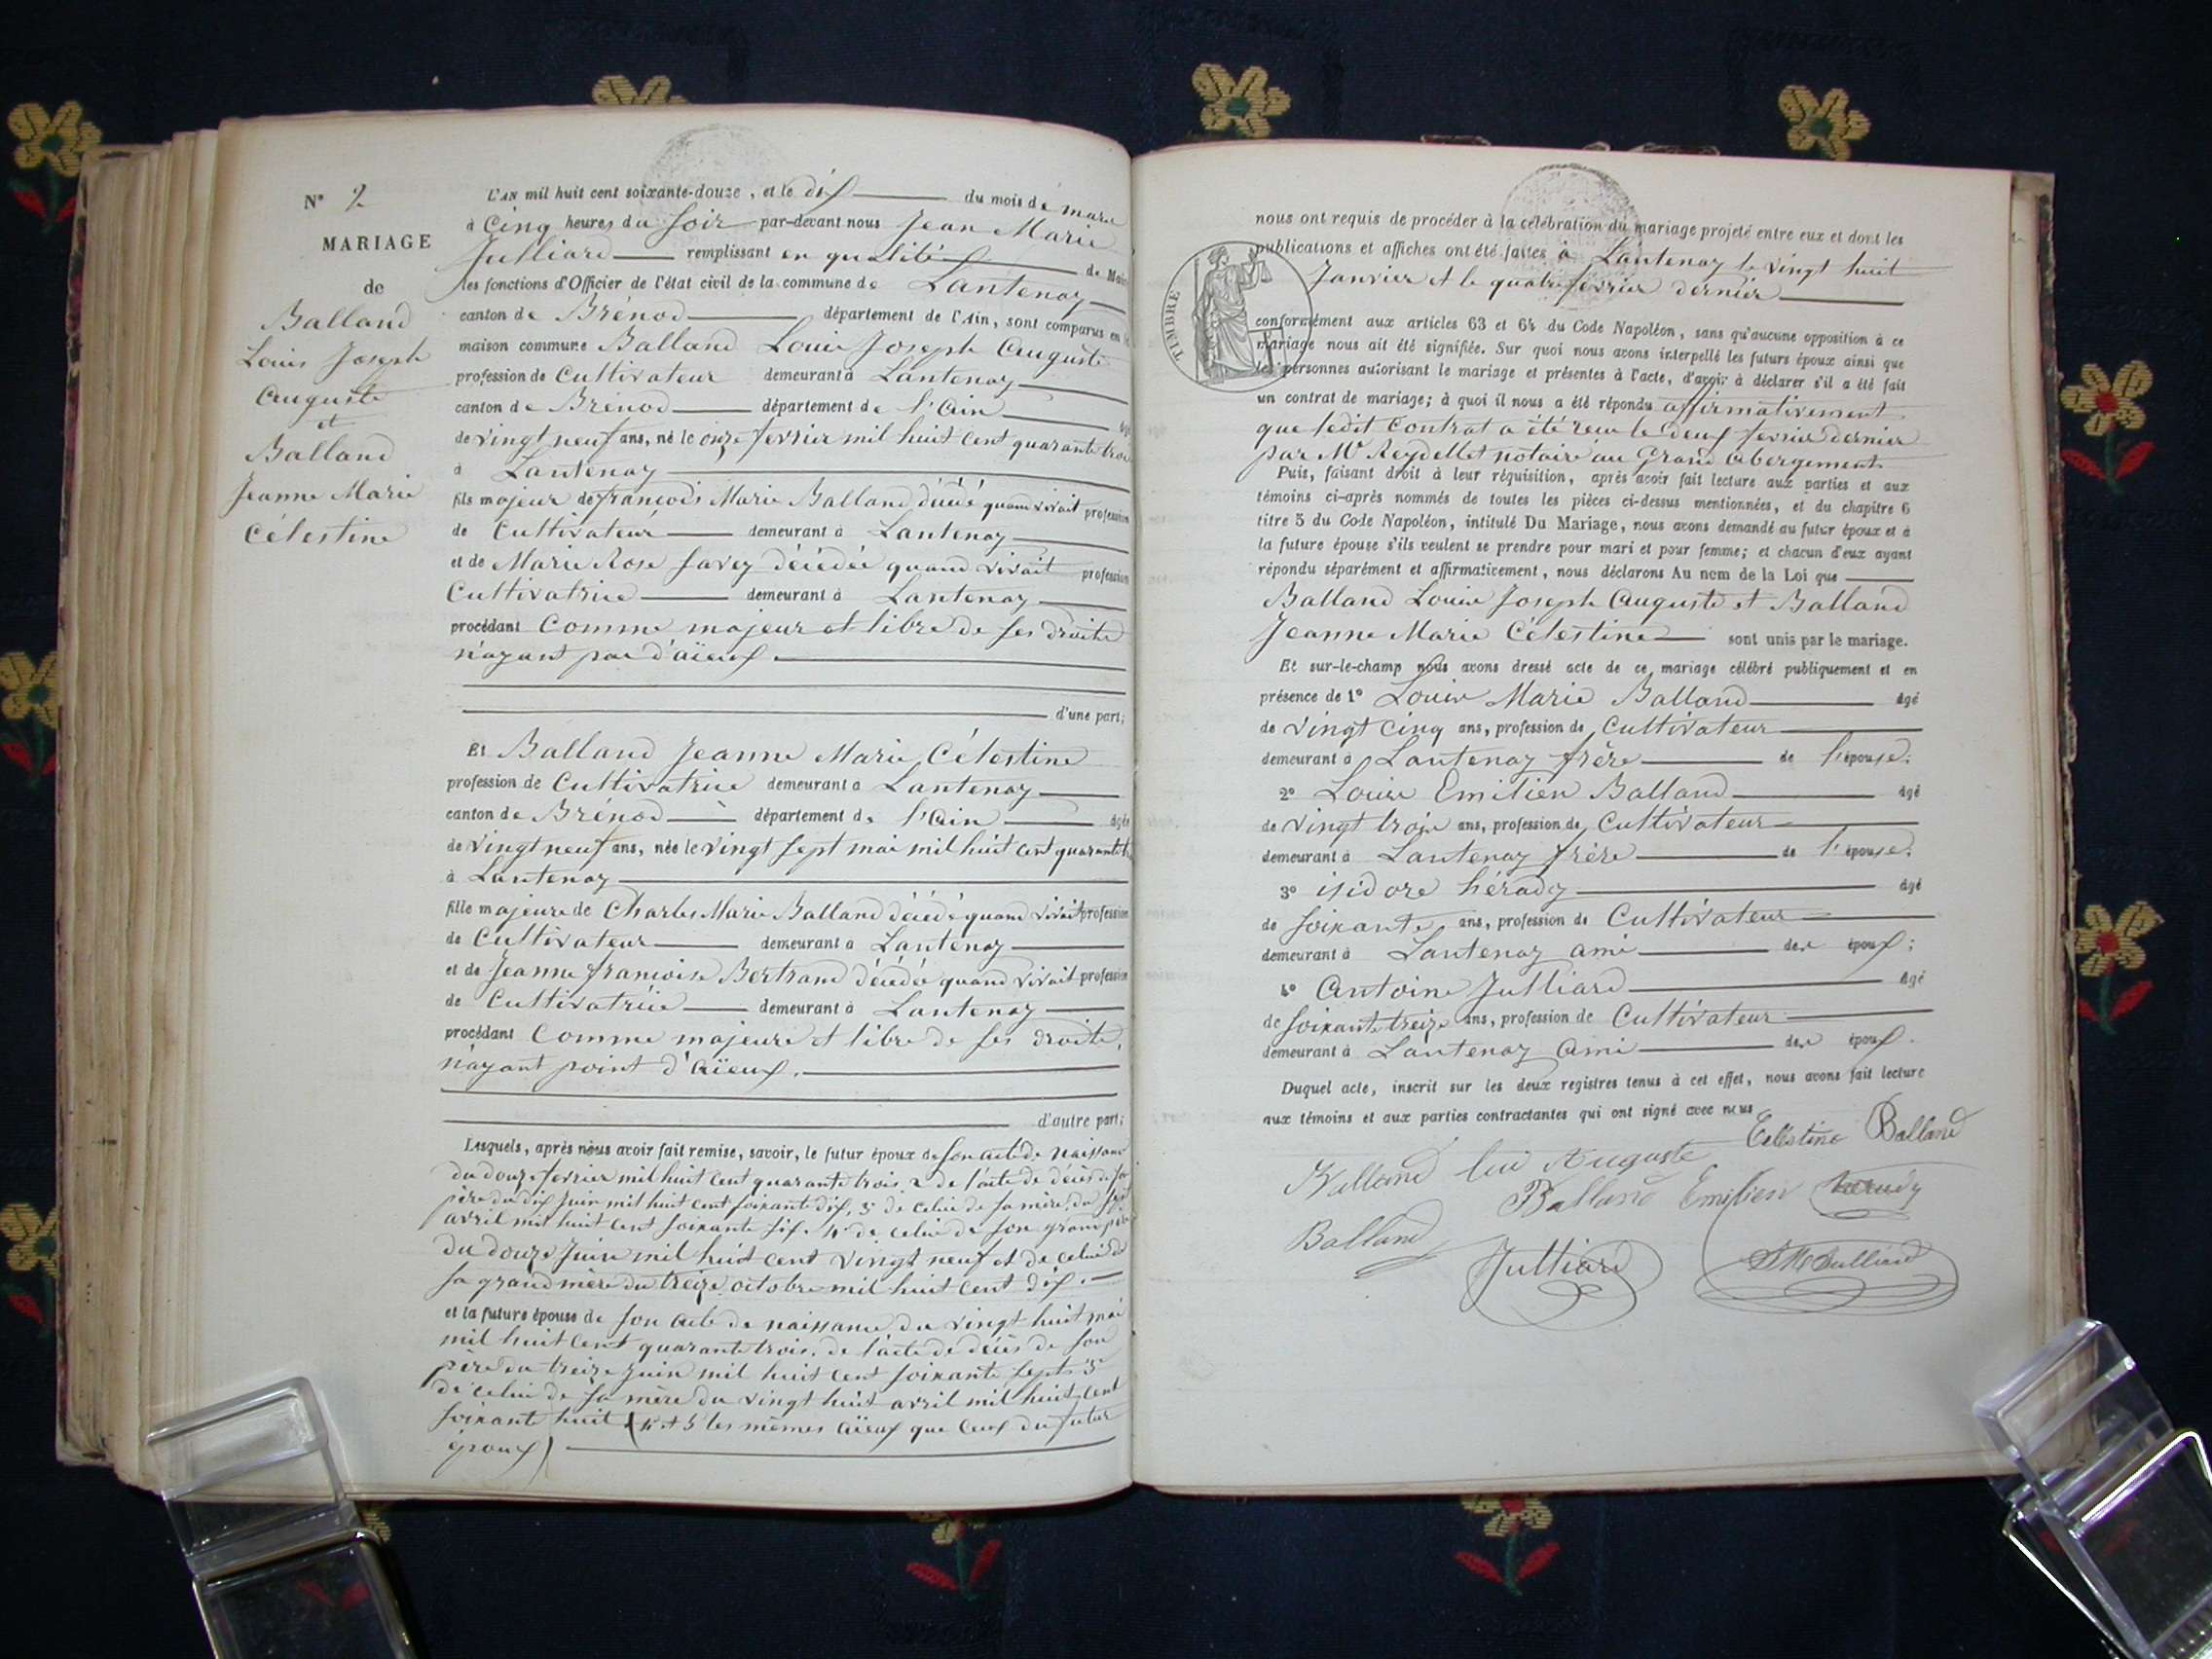 N° 2
MARIAGE
de
Balland
Louis Joseph
Auguste
et
Balland
Jeanne Marie
Célestine
L'AN mil huit cent soixante-douze, et le dix du mois de mars
à Cinq heures du soir par-devant nous Jean Marie
Julliard remplissant en qualité de Maire
les fonctions d'Officier de l'état civil de la commune de Lantenay
canton de Brénod département de l'Ain, sont comparus en la
maison commune Balland Louis Joseph Auguste
profession de Cultivateur demeurant à Lantenay
canton de Brénod département de l'Ain âgé
de vingt neuf ans, né le onze fevrier mil huit cent quarante trois
à Lantenay
fils majeur de francois Marie Balland décédé quand vivait profession
de Cultivateur demeurant à Lantenay
et de Marie Rose Savey décédée quand vivait profession
Cultivatrice demeurant à Lantenay
procédant Comme majeur et libre de ses droits
n'ayant pas d'aïeux.
d'une part;
Et Balland Jeanne Marie Célestine
profession de Cultivatrice demeurant à Lantenay
canton de Brénod département de l'Ain âgée
de vingt neuf ans, née le vingt sept mai mil huit cent quarante
à Lantenay
fille majeure de Charles Marie Balland décédé quand vivait profession
de Cultivateur demeurant à Lantenay
et de Jeanne francoise Bertrand décédée quand vivait profession
de Cultivatrice demeurant à Lantenay
procédant Comme majeure et libre de ses droits,
n'ayant point d'aïeux.
d'autre part;
Lesquels, après nous avoir fait remise, savoir, le futur époux de son acte de naissance
du douze fevrier mil huit cent quarante trois 2 de l'acte de décès de son
père du dix juin mil huit cent soixante dix, 3° de celui de sa mère, du
avril mil huit cent soixante six. 4° de celui de son grand père
du douze Juin mil huit cent vingt neuf et de celui de
sa grand mère du treize octobre mil huit cent dix.
et la future épouse de son acte de naissance du vingt huit mai
mil huit cent quarante trois, de l'acte de décès de son
père du treize juin mil huit cent soixante sept 3°
de celui de sa mère du vingt huit avril mil huit cent
soixante huit (4 et 5 les mêmes aïeux que ceux du futur
époux)
TIMBRE
nous ont requis de procéder à la célébration du mariage projeté entre eux et dont les
publications et affiches ont été faites à Lantenay le vingt huit
Janvier et le quatre fevrier dernier
conformément aux articles 63 et 64 du Code Napoléon, sans qu'aucune opposition à ce
mariage nous ait été signifiée. Sur quoi nous avons interpellé les futurs époux ainsi que
les personnes autorisant le mariage et présentes à l'acte, d'avoir à déclarer s'il a été fait
un contrat de mariage; à quoi il nous a été répondu affirmativement
que ledit Contrat a été recu le deux fevrier dernier
par Me Reydellet notaire au Grand Abergement
Puis, faisant droit à leur réquisition, après avoir fait lecture aux parties et aux
témoins ci-après nommés de toutes les pièces ci-dessus mentionnées, et du chapitre 6
titre 5 du Code Napoléon, intitulé Du Mariage, nous avons demandé au futur époux et à
la future épouse s'ils veulent se prendre pour mari et pour femme; et chacun d'eux ayant
répondu séparément et affirmativement, nous déclarons Au nom de la Loi que
Balland Louis Joseph Auguste et Balland
Jeanne Marie Célestine sont unis par le mariage.
Et sur-le-champ nous avons dressé acte de ce mariage célébré publiquement et en
présence de 1° Louis Marie Balland âgé
de vingt Cinq ans, profession de Cultivateur
demeurant à Lantenay frère de l'épouse.
2° Louis Emilien Balland âgé
de vingt trois ans, profession de Cultivateur
demeurant à Lantenay frère de l'épouse.
3° isidore hérady âgé
de soixante ans, profession de Cultivateur
demeurant à Lantenay ami des époux;
4° Antoine Julliard âgé
de soixante treize ans, profession de Cultivateur
demeurant à Lantenay Ami des époux.
Duquel acte, inscrit sur les deux registres tenus à cet effet, nous avons fait lecture
aux témoins et aux parties contractantes qui ont signé avec nous
Celestine Balland
Balland lui Auguste
Balland Emilien
Balland
Julliard
JM Julliard